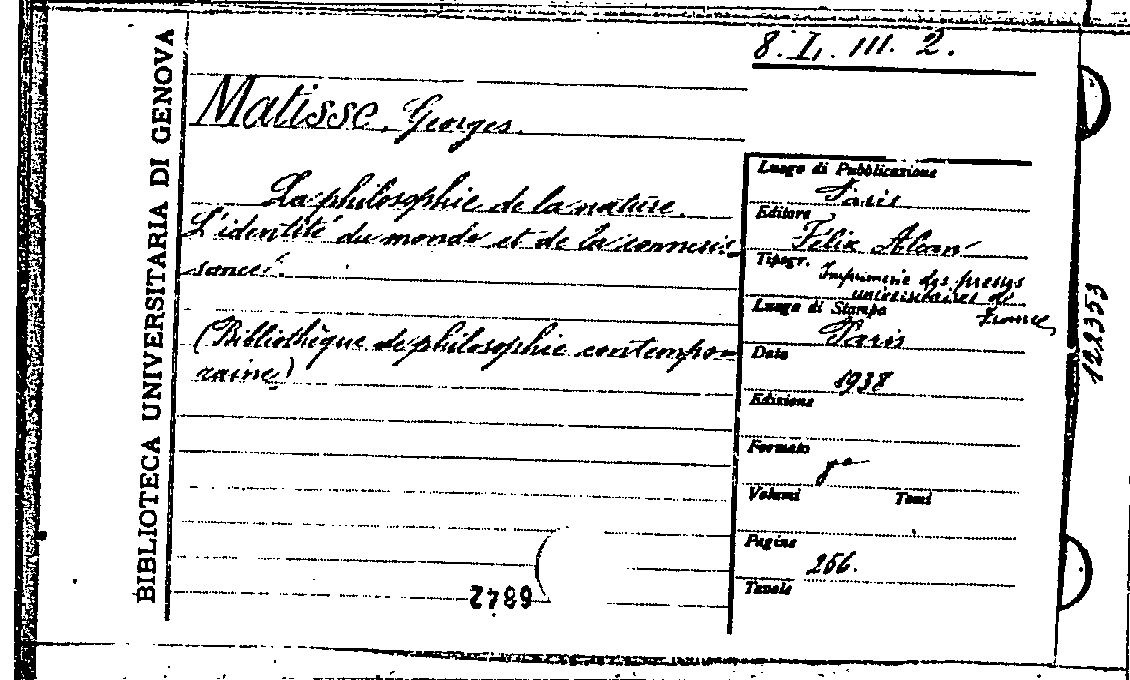 8. I. III. 2.
BIBLIOTECA UNIVERSITARIA DI GENOVA
Matisse, Georges.
La philosophie de la nature.
L'identité du monde et de la connais-
sance.
(Bibliothèque de philosophie contempo-
raine)
6842
Luogo di Pubblicazione
Paris
Editore
Félix Alcan
Tipogr. Imprimerie des presses
universitaires de
France,
Luogo di Stampa
Paris
Data
1938
Edizione
Formato
8º
Volumi Tomi
Pagine
256.
Tavole
122353